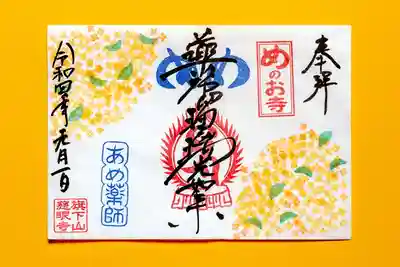 奉拝
めのお寺
薬師瑠璃光如来
あめ薬師
令和四年 月一日
旗下山
慈眼寺